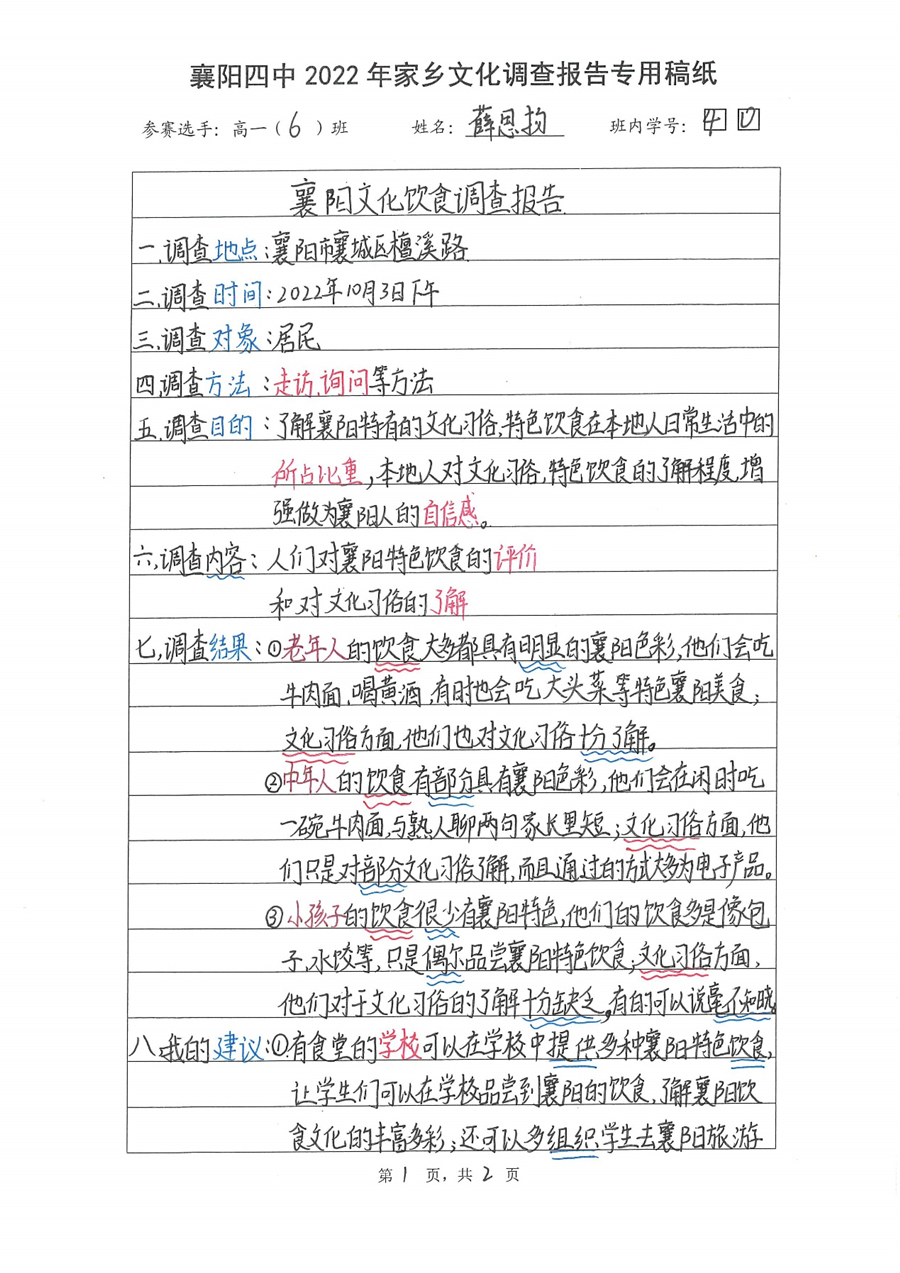 襄阳四中 2022 年家乡文化调查报告专用稿纸
参赛选手：高一（6）班 姓名：薛恩均 班内学号：40
襄阳文化饮食调查报告
一.调查地点：襄阳市襄城区檀溪路
二.调查时间：2022年10月3日下午
三.调查对象：居民
四.调查方法：走访、询问等方法
五.调查目的：了解襄阳特有的文化习俗,特色饮食在本地人日常生活中的
所占比重,本地人对文化习俗,特色饮食的了解程度,增
强做为襄阳人的自信感。
六.调查内容：人们对襄阳特色饮食的评价
和对文化习俗的了解
七.调查结果：①老年人的饮食大多都具有明显的襄阳色彩,他们会吃
牛肉面、喝黄酒,有时也会吃大头菜等特色襄阳美食；
文化习俗方面,他们也对文化习俗十分了解。
②中年人的饮食有部分具有襄阳色彩,他们会在闲时吃
一碗牛肉面,与熟人聊两句家长里短；文化习俗方面,他
们只是对部分文化习俗了解,而且通过的方式大多为电子产品。
③小孩子的饮食很少有襄阳特色,他们的饮食多是像包
子、水饺等,只是偶尔品尝襄阳特色饮食；文化习俗方面,
他们对于文化习俗的了解十分缺乏,有的可以说毫不知晓。
八.我的建议：①.有食堂的学校可以在学校中提供多种襄阳特色饮食,
让学生们可以在学校品尝到襄阳的饮食,了解襄阳饮
食文化的丰富多彩；还可以多组织学生去襄阳旅游
第 1 页，共 2 页